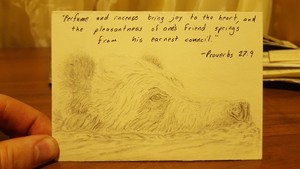 "Perfume and incense bring joy to the heart, and
the pleasantness of one's friend springs
from his earnest council."
-Proverbs 27:9